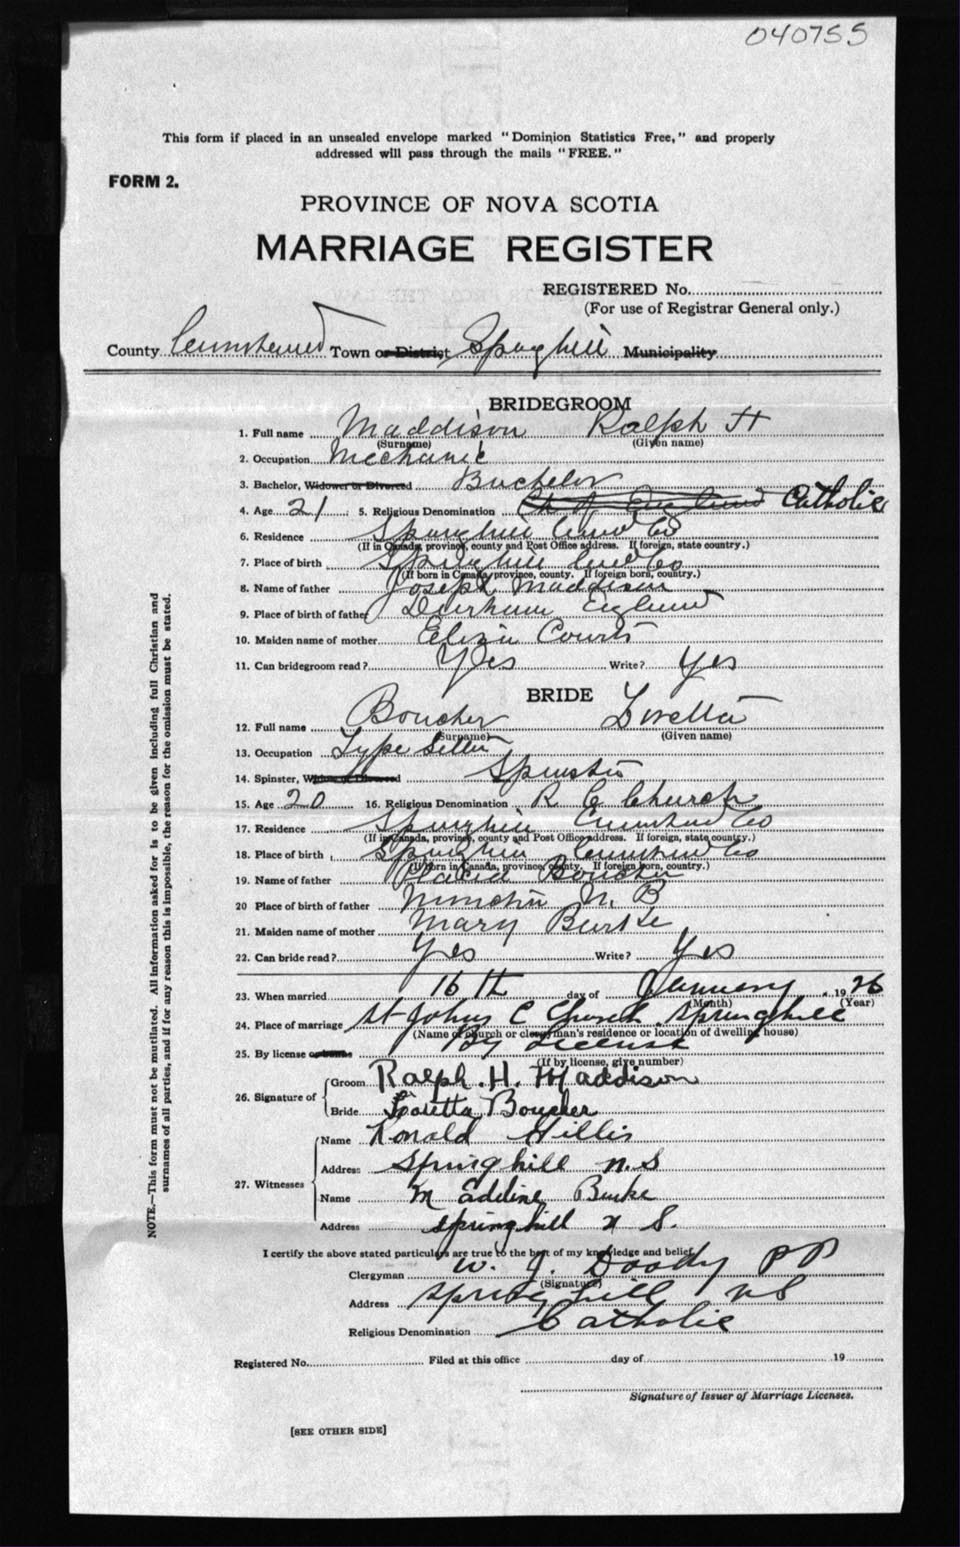 040755
This form if placed in an unsealed envelope marked "Dominion Statistics Free," and properly
addressed will pass through the mails "FREE."
FORM 2.
PROVINCE OF NOVA SCOTIA
MARRIAGE REGISTER
REGISTERED No.
(For use of Registrar General only.)
County Cumberland Town or District Springhill Municipality
BRIDEGROOM
1. Full name Maddison Ralph H
(Surname) (Given name)
2. Occupation Mechanic
3. Bachelor, Widower or Divorced Bachelor
4. Age 21 5. Religious Denomination Ch of England Catholic
6. Residence Springhill Cumb Co
(If in Canada, province, county and Post Office address. If foreign, state country.)
7. Place of birth Springhill Cumb Co
(If born in Canada, province, county. If foreign born, country.)
8. Name of father Joseph Maddison
9. Place of birth of father Durham England
10. Maiden name of mother Eliza
11. Can bridegroom read? Yes Write? Yes
BRIDE
12. Full name Boucher Loretta
(Surname) (Given name)
13. Occupation Type Setter
14. Spinster, Widow or Divorced Spinster
15. Age 20 16. Religious Denomination R C Church
17. Residence Springhill Cumberland Co
(If in Canada, province, county and Post Office address. If foreign, state country.)
18. Place of birth Springhill Cumberland Co
(If born in Canada, province, county. If foreign born, country.)
19. Name of father Placid Boucher
20 Place of birth of father N. B
21. Maiden name of mother Mary Burke
22. Can bride read? Yes Write? Yes
23. When married 16th day of January 1926
(Month) (Year)
24. Place of marriage St Johns C Church Springhill
(Name of church or clergyman's residence or location of dwelling house)
25. By license or banns By License
(If by license, give number)
26. Signature of
Groom Ralph. H. Maddison
Bride Loretta Boucher
27. Witnesses
Name Ronald Hillis
Address Springhill N.S
Name M Adeline Burke
Address Springhill N S.
I certify the above stated particulars are true to the best of my knowledge and belief.
Clergyman W. J. Doody P P
(Signature)
Address Springhill N S
Religious Denomination Catholic
Registered No. Filed at this office day of 19
Signature of Issuer of Marriage Licenses.
[SEE OTHER SIDE]
NOTE.—This form must not be mutilated. All information asked for is to be given including full Christian and
surnames of all parties, and if for any reason this is impossible, the reason for the omission must be stated.